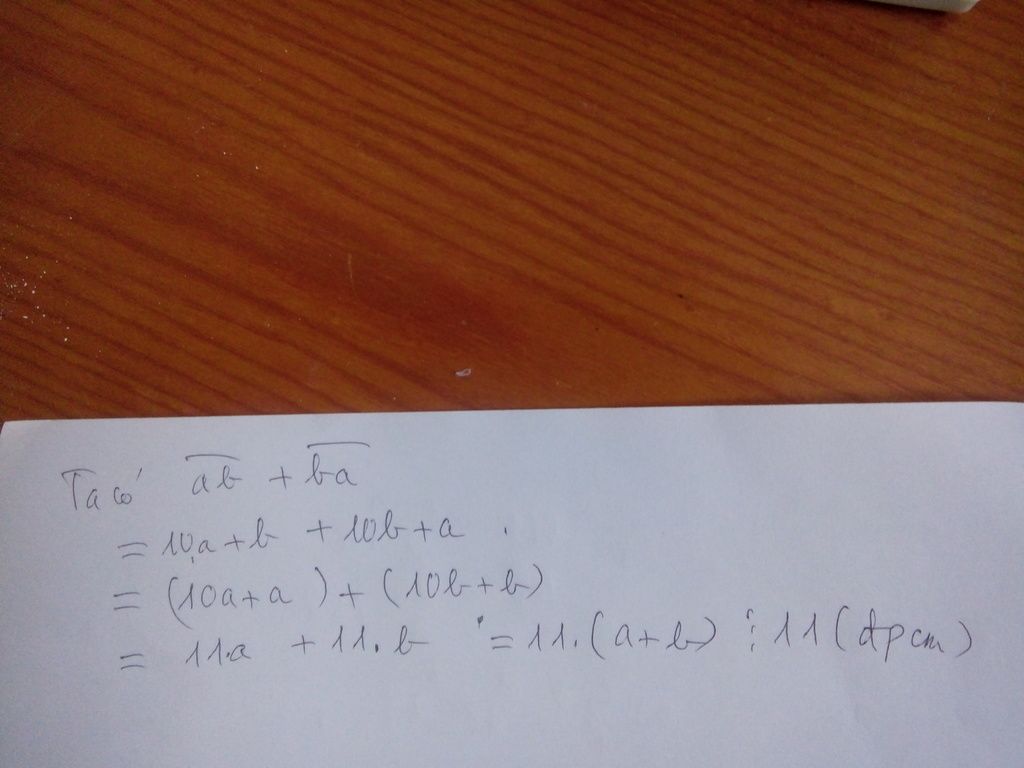 Ta có $\overline{ab} + \overline{ba}$
= 10.a + b + 10b + a .
= (10a + a) + (10b + b)
= 11.a + 11.b = 11.(a + b) ⋮ 11 (đpcm)